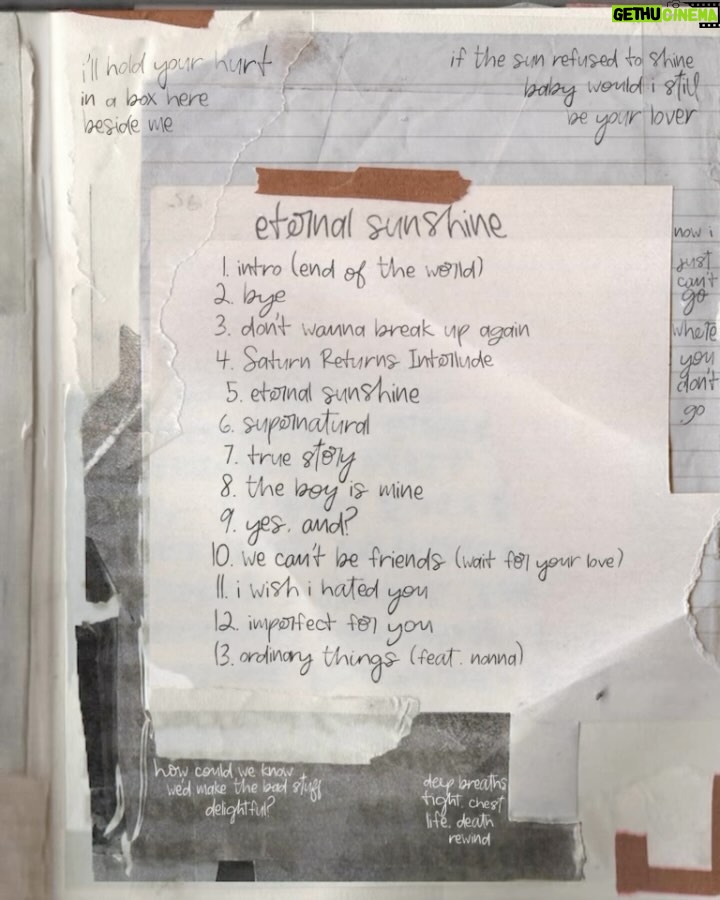 GETHUCINEMA
i'll hold your hurt
in a box here
beside me
if the sun refused to shine
baby would i still
be your lover
eternal sunshine
1. intro (end of the world)
2. bye
3. don't wanna break up again
4. Saturn Returns Interlude
5. eternal sunshine
6. supernatural
7. true story
8. the boy is mine
9. yes, and?
10. we can't be friends (wait for your love)
11. i wish i hated you
12. imperfect for you
13. ordinary things (feat. nonna)
now i
just
can't
go
where
you
don't
go
how could we know
we'd make the bad stuff
delightful?
deep breaths
tight chest
life, death
rewind